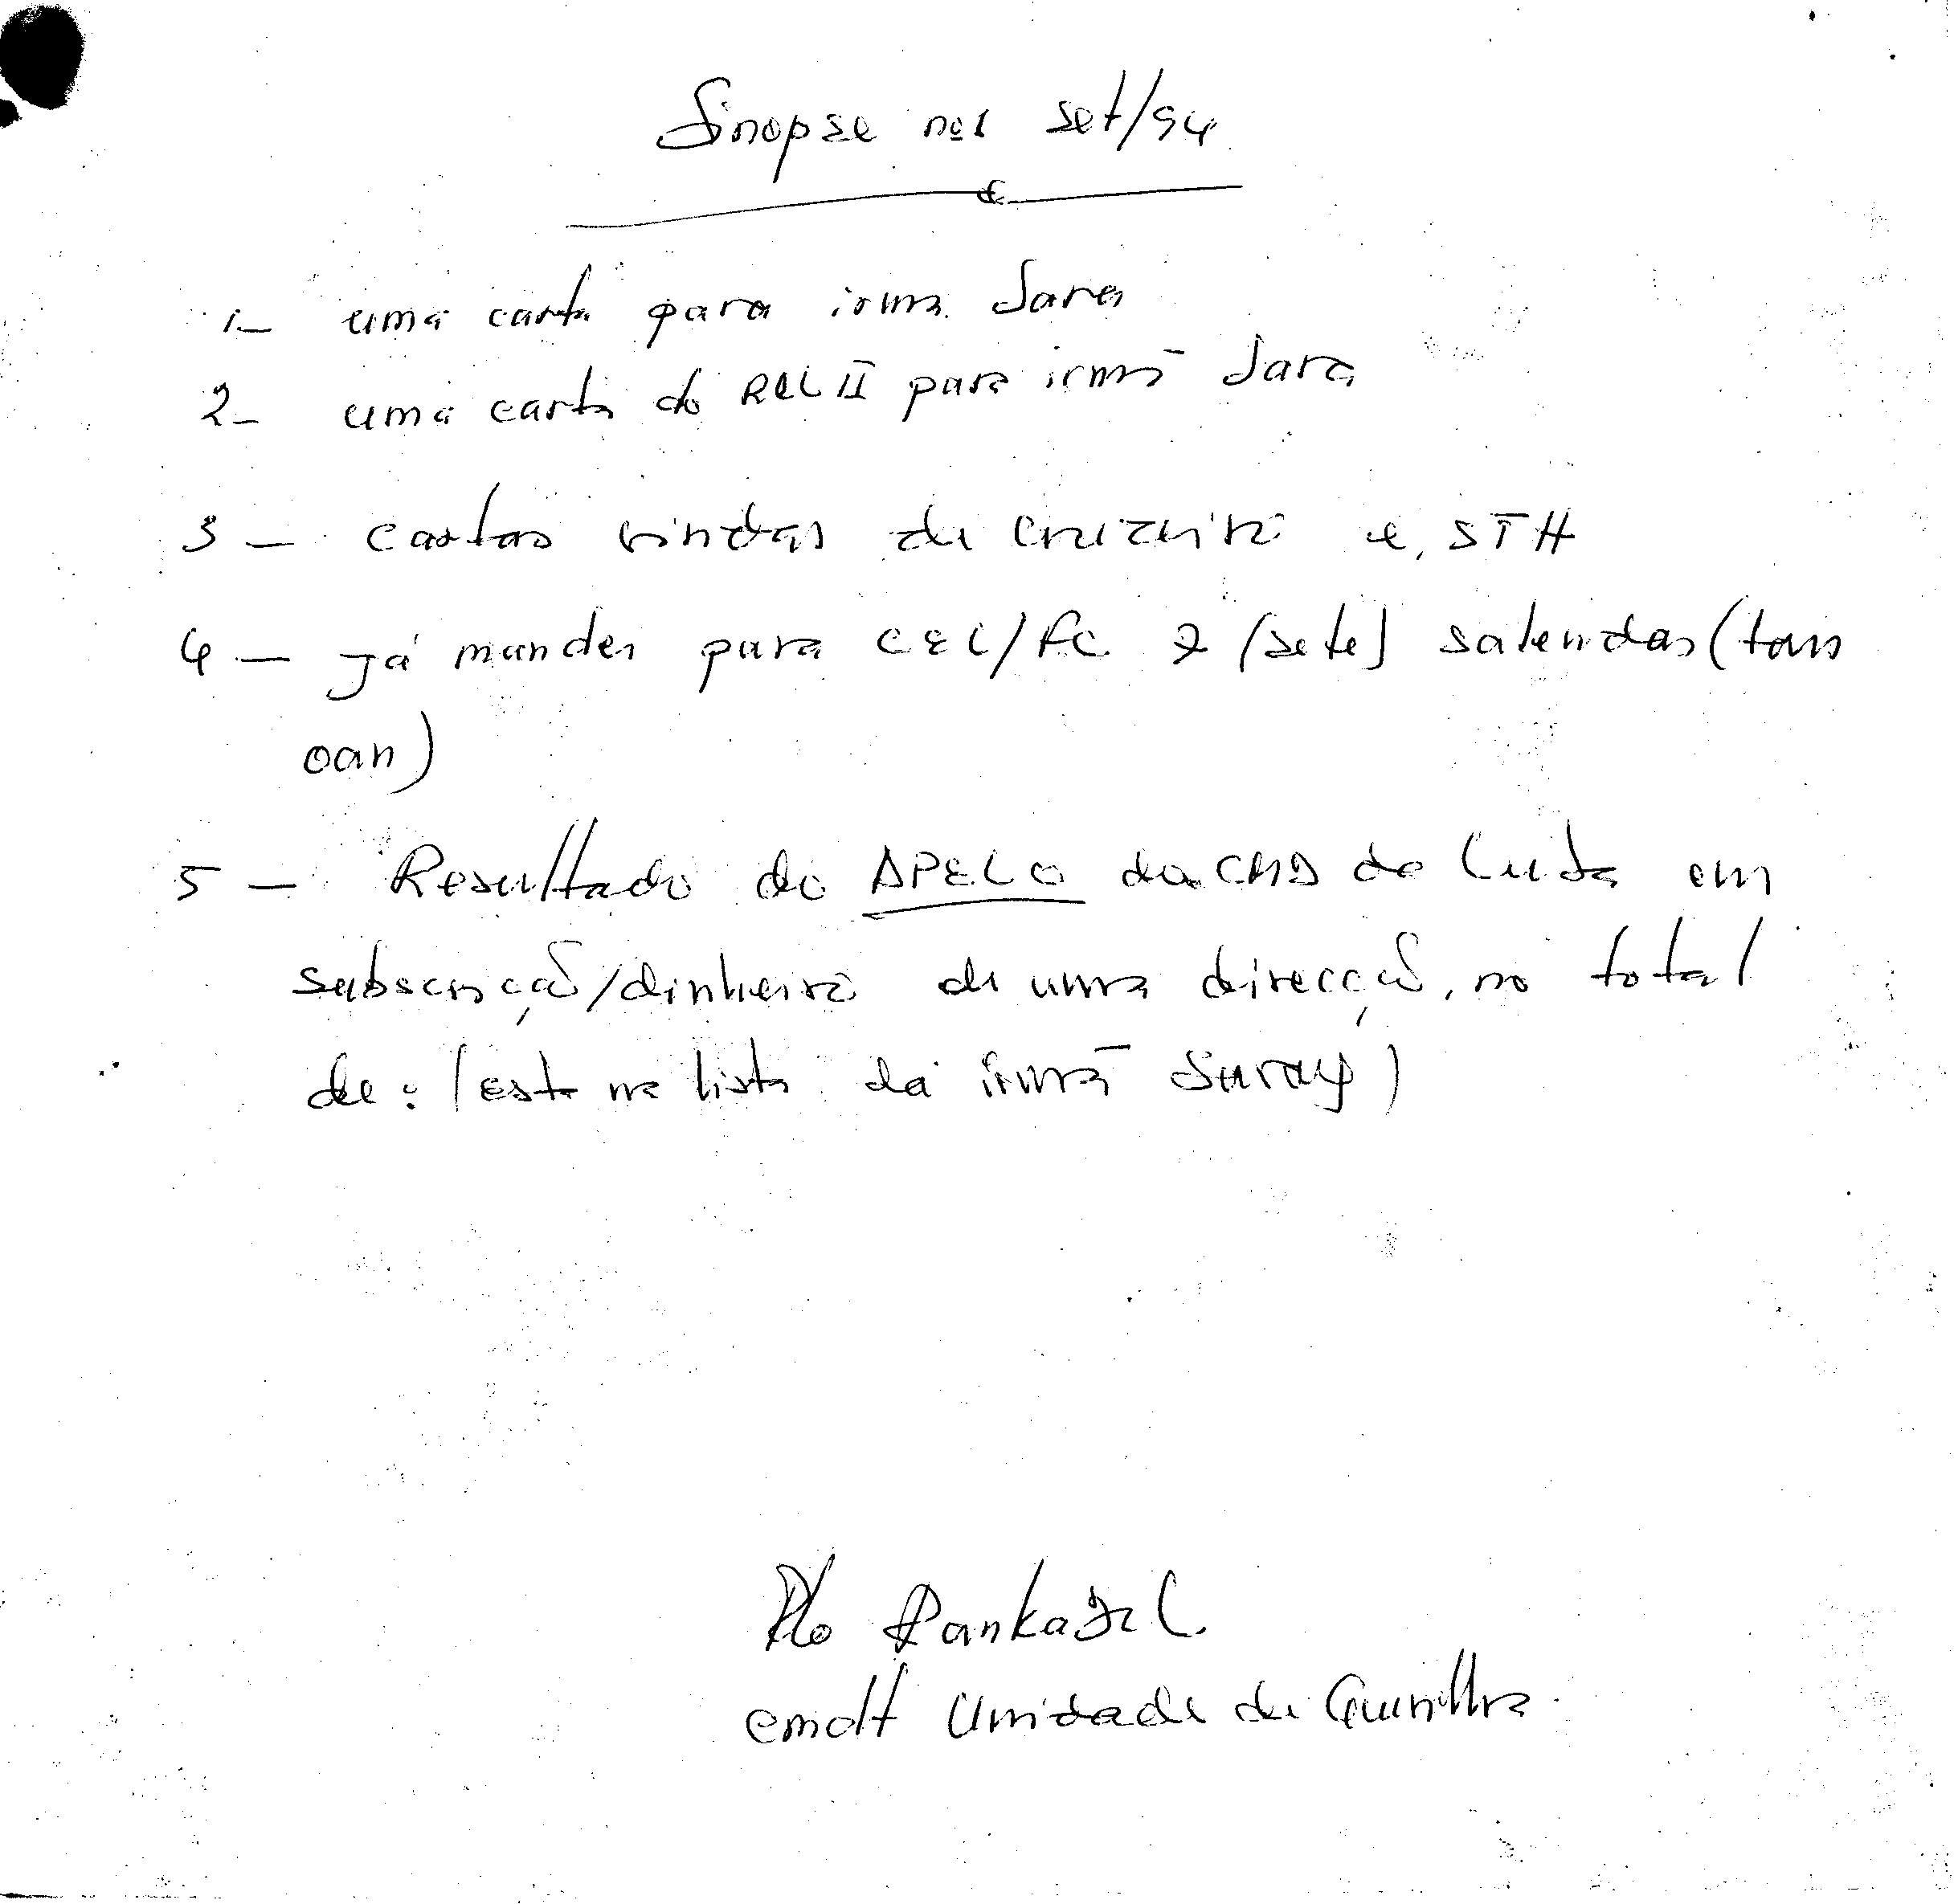 Sinopse nos set/94
1- uma carta para irmã Sara
2- uma carta do REL II para irmã Sara
3 - cartas vindas de cruzeiro e, STH
4 - Já mandei para CEL/FC 7 (sete) salendas (tais
oan)
5 - Resultado do APELO da da Luta em
subscrição/dinheiro de uma direcção, no total
de: (est na lista da irmã Suray)
Unidade de Guerilha